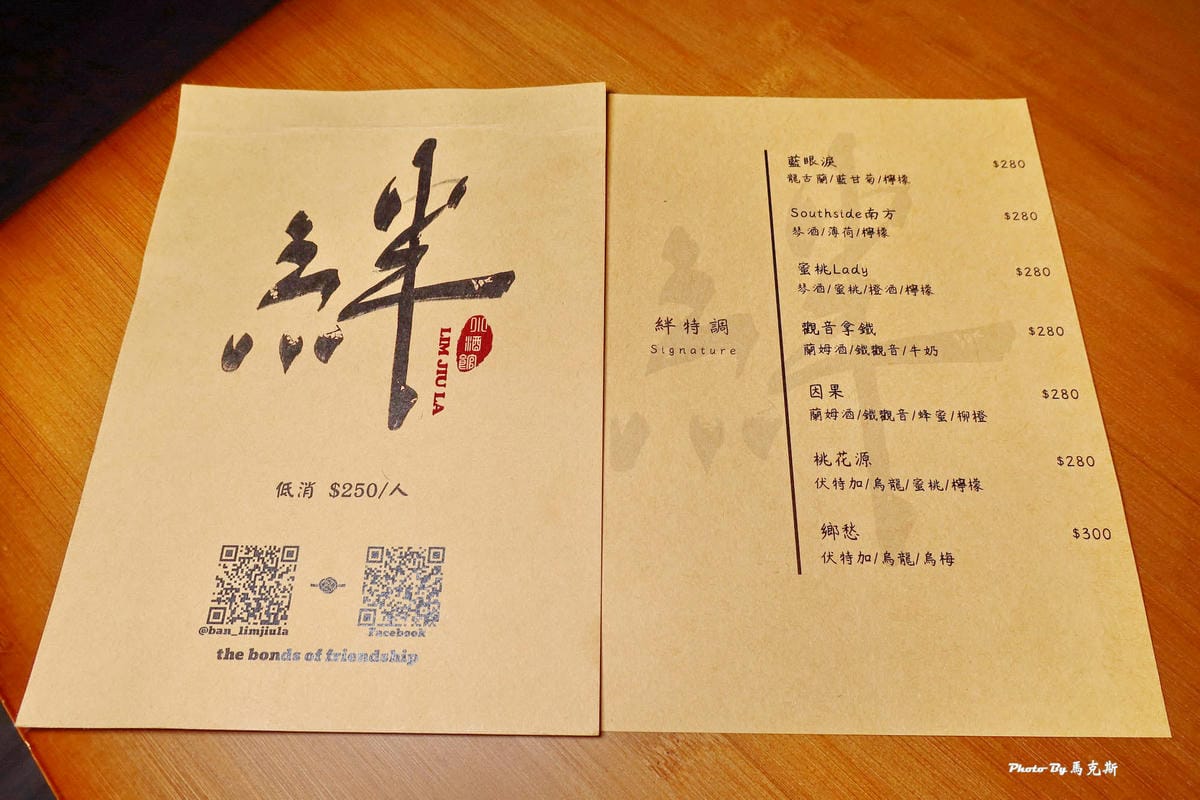 絆
小酒館
LIM JIU LA
低消 $250/人
@ban_limjiula
Facebook
the bonds of friendship
絆特調
Signature
藍眼淚 $280
龍古蘭/藍甘菊/檸檬
Southside南方 $280
琴酒/薄荷/檸檬
蜜桃Lady $280
琴酒/蜜桃/橙酒/檸檬
觀音拿鐵 $280
蘭姆酒/鐵觀音/牛奶
因果 $280
蘭姆酒/鐵觀音/蜂蜜/柳橙
桃花源 $280
伏特加/烏龍/蜜桃/檸檬
鄉愁 $300
伏特加/烏龍/烏梅
Photo By 馬克斯